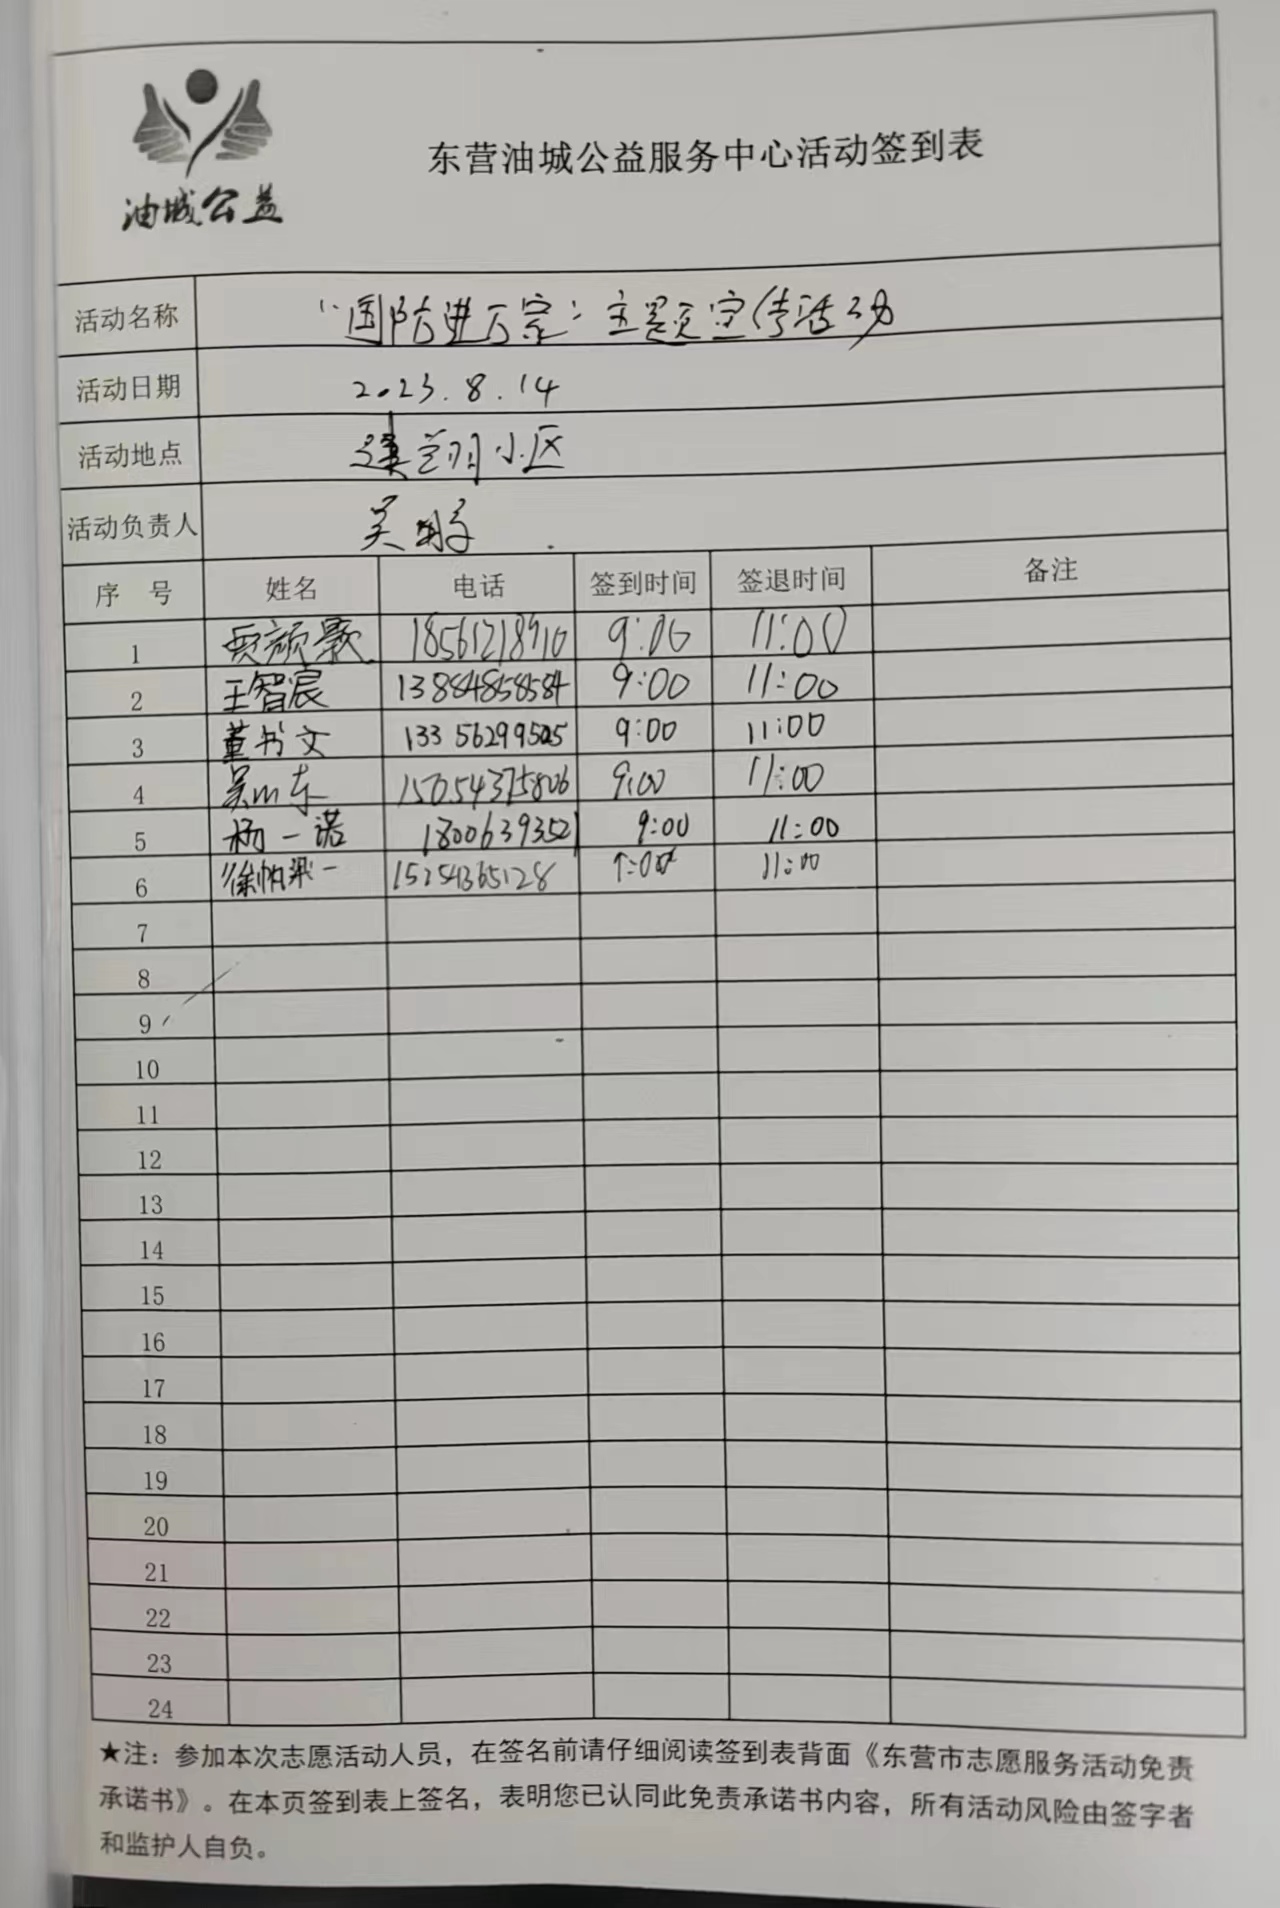 油城公益
东营油城公益服务中心活动签到表
活动名称 “国防进万家”主题宣传活动
活动日期 2023.8.14
活动地点 小区
活动负责人 吴
序 号 姓名 电话 签到时间 签退时间 备注
1 贾颜 18561218910 9:00 11:00
2 王智宸 13884858584 9:00 11:00
3 董书文 9:00 11:00
4 吴山东 15054375806 9:00 11:00
5 杨一诺 18006393521 9:00 11:00
6 徐帕 15254365128 9:00 11:00
7
8
9
10
11
12
13
14
15
16
17
18
19
20
21
22
23
24
★注：参加本次志愿活动人员，在签名前请仔细阅读签到表背面《东营市志愿服务活动免责
承诺书》。在本页签到表上签名，表明您已认同此免责承诺书内容，所有活动风险由签字者
和监护人自负。